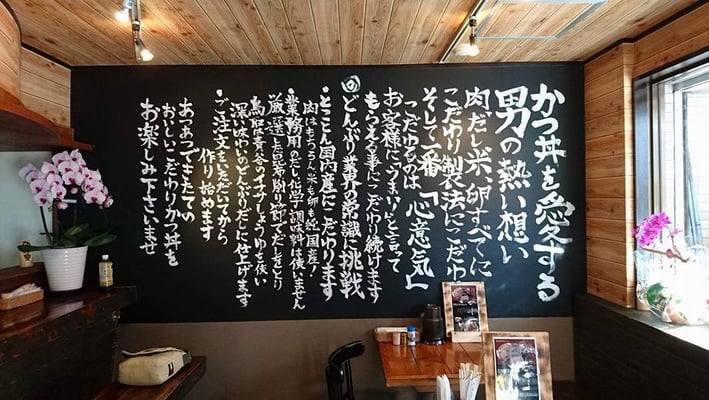 かつ丼を愛する
男の熱い想い
肉だし米、卵すべてに
こだわり製法にこだわり
そして一番
こだわるのは「心意気」
お客様に「うまい」と言って
もらえる事にこだわり続けます
どんぶり業界の常識に挑戦
・とことん国内産にこだわります
肉はもちろん米も卵も純国産!
・業務用のだし、化学調味料は使いません
厳選した昆布、削り節でだしをとり
鳥取青谷のイナサしょうゆを使い
深い味わいのどんぶりだしに仕上げます
・ご注文をいただいてから
作り始めます
あつあつできたての
おいしいこだわりかつ丼を
お楽しみ下さいませ